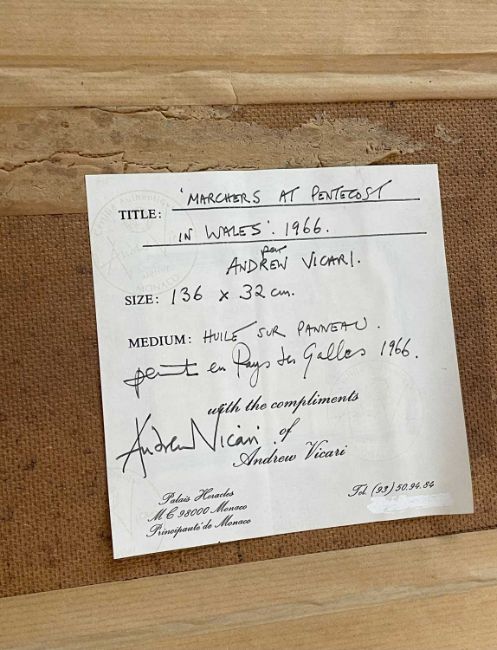 TITLE: 'MARCHERS AT PENTECOST
IN WALES'. 1966.
par
ANDREW VICARI.
SIZE: 136 x 32 cm.
MEDIUM: HUILE SUR PANNEAU.
peint en Pays des Galles 1966.
with the compliments
Andrew Vicari of
Andrew Vicari
Palais Heracles
MC 98000 Monaco
Principauté de Monaco
Tel. (93) 50.94.84